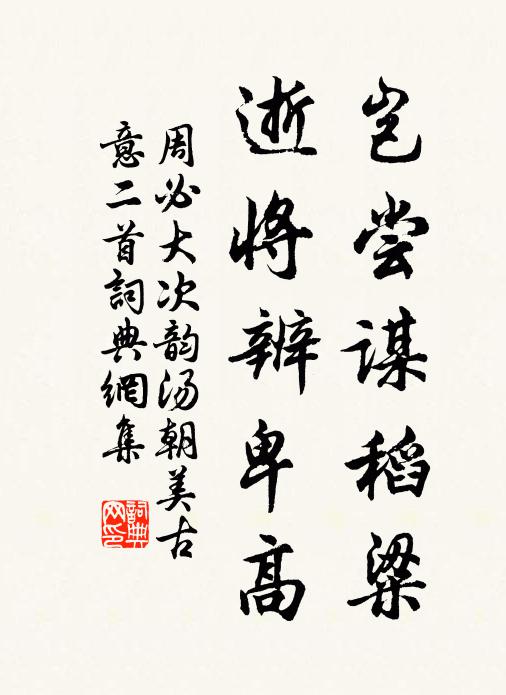 岂尝谋稻粱
逝将辨卑高
周必大次韵汤朝美古
意二首詞典網集
詞典网印